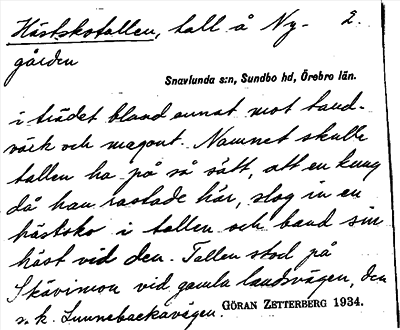 Hästskotallen, tall å Ny- 2.
gården
Snavlunda s:n, Sundbo hd, Örebro län.
i trädet bland annat mot tand-
värk och magont. Namnet skulle
tallen ha på så sätt, att en kung
då han rastade här, slog in en
hästsko i tallen och band sin
häst vid den. Tallen stod på
Skävimon vid gamla landsvägen, den
s.k. Linnebackavägen. GÖRAN ZETTERBERG 1934.